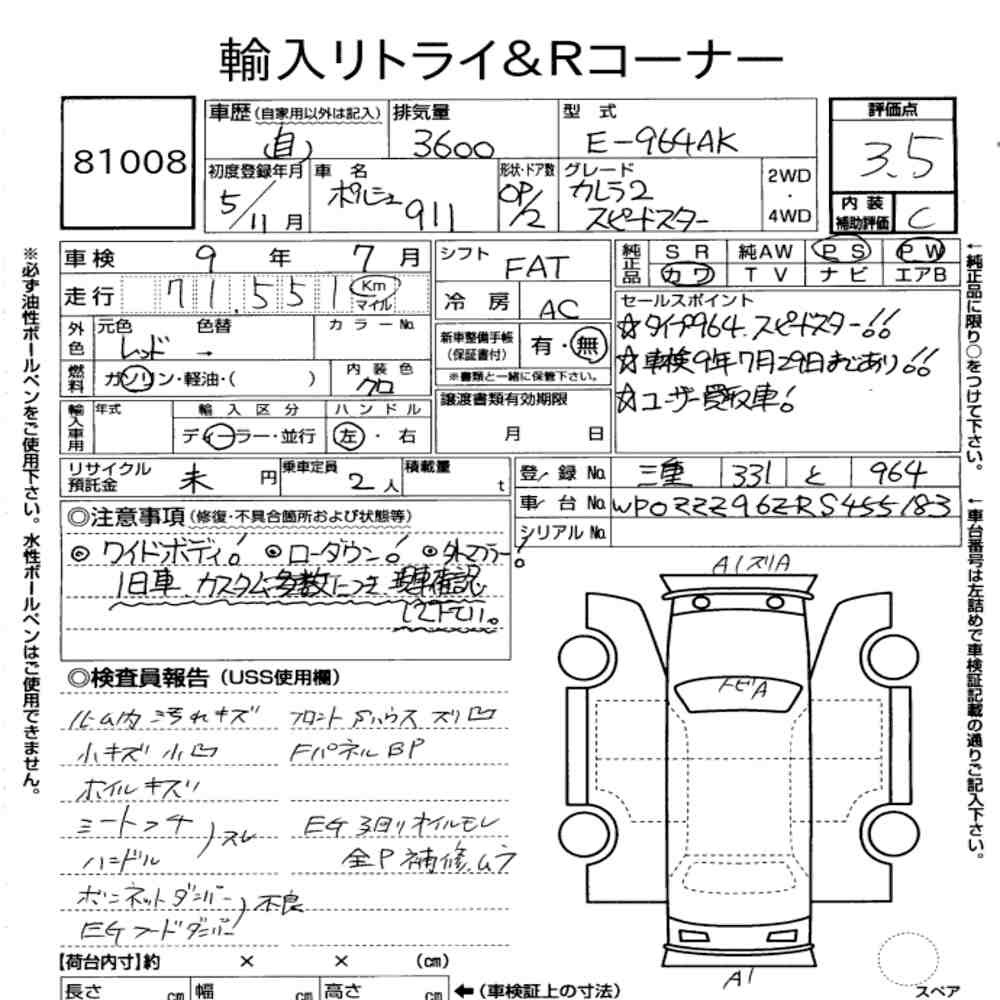 輸入リトライ&Rコーナー
81008
車歴(自家用以外は記入) 自
排気量 3600
型式 E-964AK
評価点 3.5
初度登録年月 5/11月
車名 ポルシェ 911
形状・ドア数 OP/2
グレード カレラ2 スピードスター
2WD・4WD
内装補助評価 C
車検 9年 7月
走行 71,551 Km マイル
シフト FAT
冷房 AC
純正品 SR 純AW PS PW
カワ TV ナビ エアB
外色 元色 レッド 色替 → カラーNo.
燃料 ガソリン・軽油・( ) 内装色 クロ
新車整備手帳(保証書付) 有・無
※書類と一緒に保管下さい。
セールスポイント
☆タイプ964.スピードスター!!
☆車検9年7月29日まであり!!
☆ユーザー買取車!
輸入車用 年式 輸入区分 ディーラー・並行 ハンドル 左・右
譲渡書類有効期限 月 日
リサイクル預託金 未 円
乗車定員 2人
積載量 t
登録No. 三重 331 と 964
車台No. WP0ZZZ96ZRS455183
シリアルNo.
◎注意事項(修復・不具合箇所および状態等)
◎ワイドボディ! ◎ローダウン! ◎外マフラー!
1日車.カスタム多数につき現車確認
して下さい。
◎検査員報告(USS使用欄)
ルーム内 汚れキズ フロント Fハウス ズリ凹
小キズ 小凹 FパネルBP
ホイルキズ
シートフチ
ハンドル )スレ
EG 3回りオイルモレ
全P補修.ムラ
ボンネットダンパー
EGフードダンパー )不良
A1ズリA
トビA
A1
スペア
【荷台内寸】約 × × (cm)
長さ cm 幅 cm 高さ cm ←(車検証上の寸法)
※必ず油性ボールペンをご使用下さい。水性ボールペンはご使用できません。
←純正品に限り○をつけて下さい。
←車台番号は左詰めで車検証記載の通りご記入下さい。